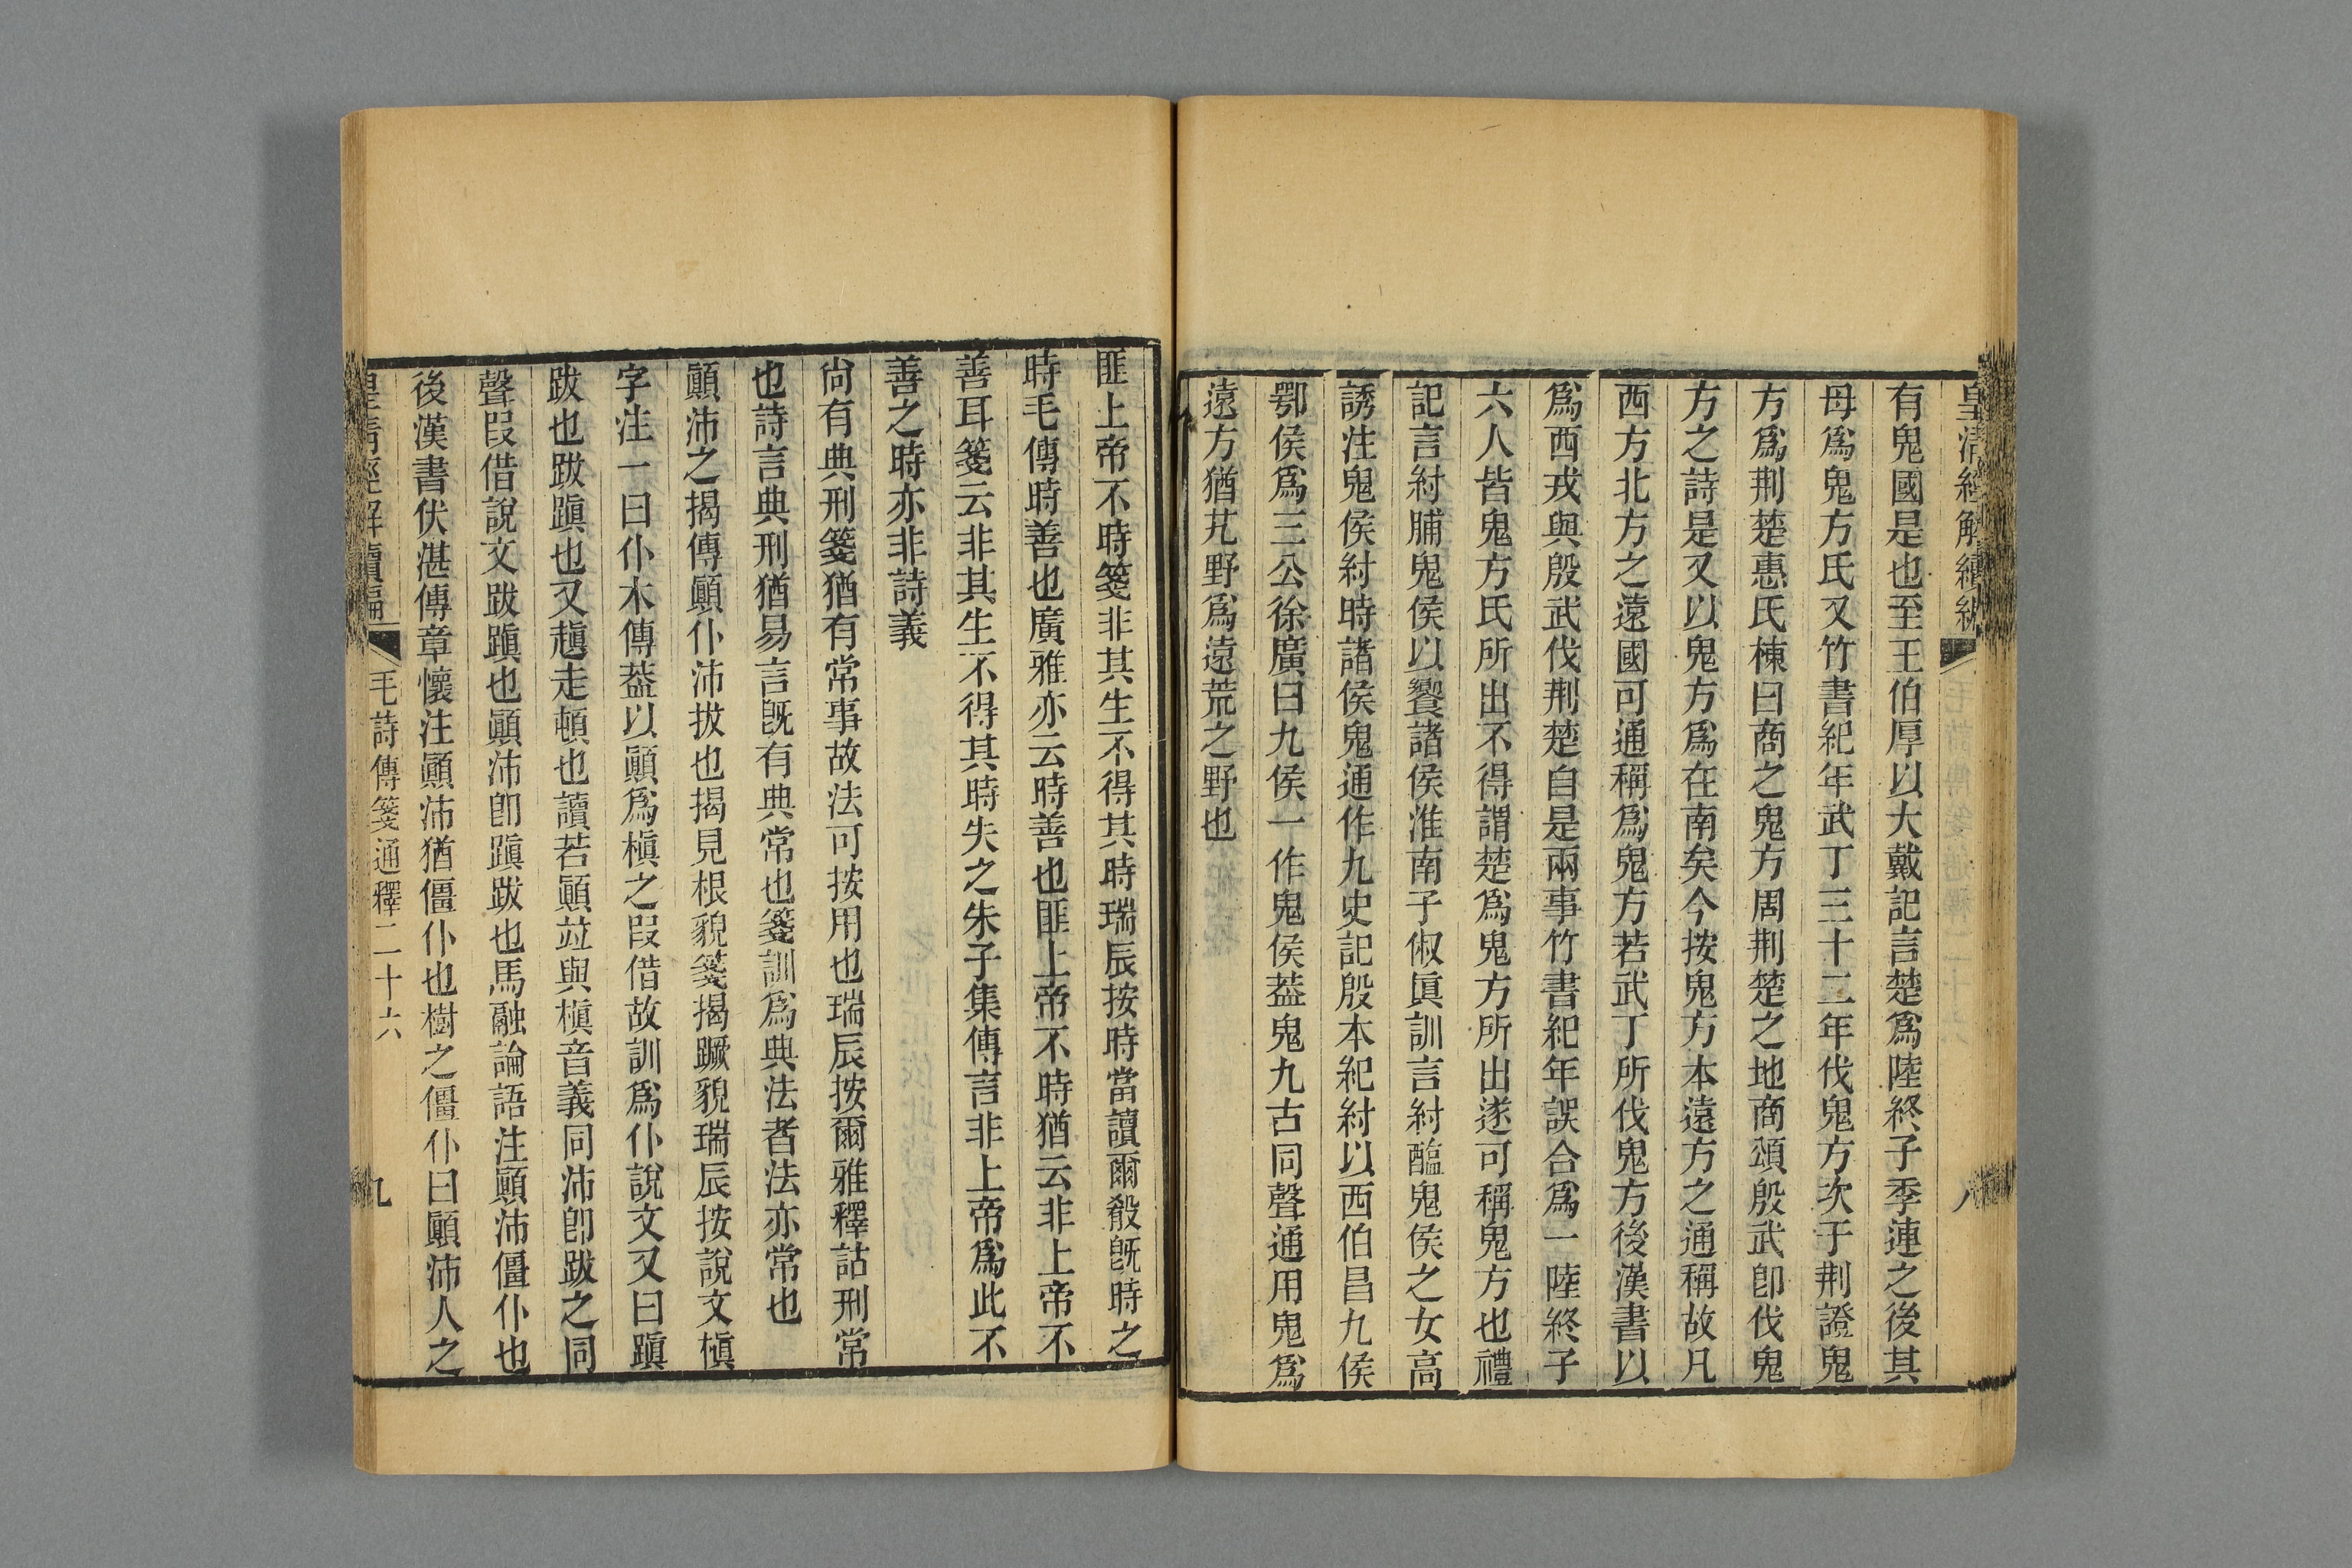 皇清經解續編
八
有鬼國是也至王伯厚以大戴記言楚爲陸終子季連之後其
母爲鬼方氏又竹書紀年武丁三十二年伐鬼方次于荆證鬼
方爲荆楚惠氏棟曰商之鬼方周荆楚之地商頌殷武卽伐鬼
方之詩是又以鬼方爲在南矣今按鬼方本遠方之通稱故凡
西方北方之遠國可通稱爲鬼方若武丁所伐鬼方後漢書以
爲西戎與殷武伐荆楚自是兩事竹書紀年誤合爲一陸終子
六人皆鬼方氏所出不得謂楚爲鬼方所出遂可稱鬼方也禮
記言紂脯鬼侯以饗諸侯淮南子俶眞訓言紂醢鬼侯之女高
誘注鬼侯紂時諸侯鬼通作九史記殷本紀紂以西伯昌九侯
鄂侯爲三公徐廣曰九侯一作鬼侯葢鬼九古同聲通用鬼爲
遠方猶艽野爲遠荒之野也
匪上帝不時箋非其生不得其時瑞辰按時當讀爾殽旣時之
時毛傳時善也廣雅亦云時善也匪上帝不時猶云非上帝不
善耳箋云非其生不得其時失之朱子集傳言非上帝爲此不
善之時亦非詩義
尙有典刑箋猶有常事故法可按用也瑞辰按爾雅釋詁刑常
也詩言典刑猶易言旣有典常也箋訓爲典法者法亦常也
顚沛之揭傳顚仆沛拔也揭見根貌箋揭蹶貌瑞辰按說文槇
字注一曰仆木傳葢以顚爲槇之叚借故訓爲仆說文又曰蹎
跋也跋蹎也又趚走頓也讀若顚竝與槇音義同沛卽跋之同
聲叚借說文跋蹎也顚沛卽蹎跋也馬融論語注顚沛僵仆也
後漢書伏湛傳章懷注顚沛猶僵仆也樹之僵仆曰顚沛人之
皇清經解續編
毛詩傳箋通釋二十六
九